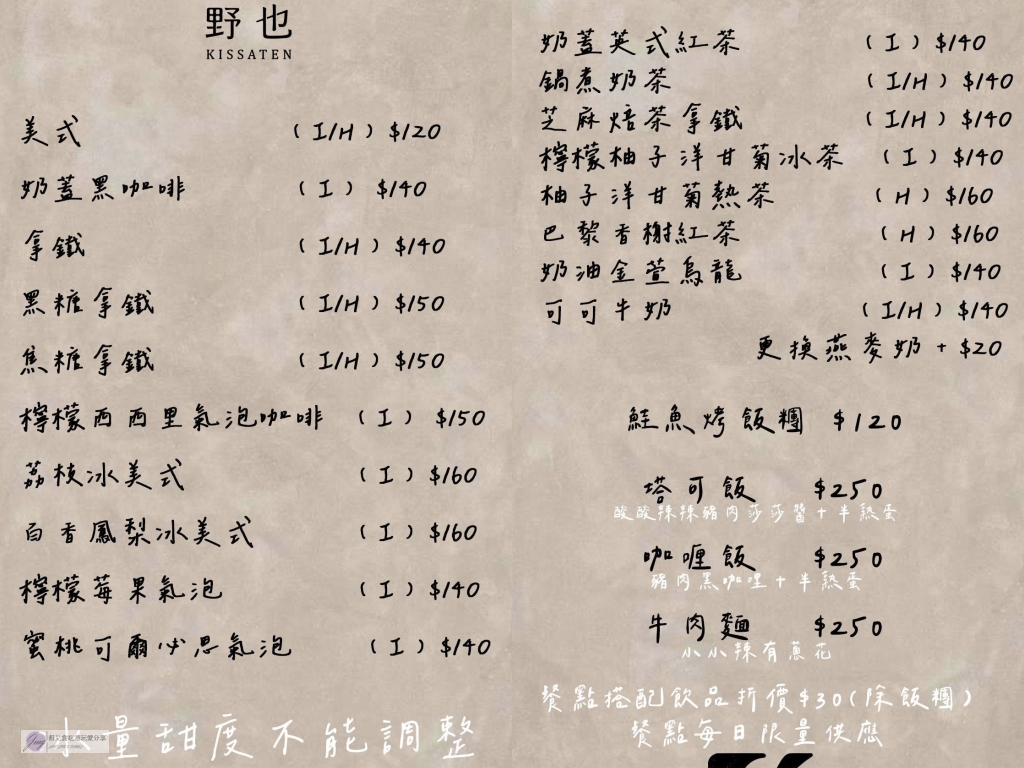 野也
KISSATEN
美式 (I/H) $120
奶蓋黑咖啡 (I) $140
拿鐵 (I/H) $140
黑糖拿鐵 (I/H) $150
焦糖拿鐵 (I/H) $150
檸檬西西里氣泡咖啡 (I) $150
荔枝冰美式 (I) $160
百香鳳梨冰美式 (I) $160
檸檬莓果氣泡 (I) $140
蜜桃可爾必思氣泡 (I) $140
冰量甜度不能調整
奶蓋英式紅茶 (I) $140
鍋煮奶茶 (I/H) $140
芝麻焙茶拿鐵 (I/H) $140
檸檬柚子洋甘菊冰茶 (I) $140
柚子洋甘菊熱茶 (H) $160
巴黎香榭紅茶 (H) $160
奶油金萱烏龍 (I) $140
可可牛奶 (I/H) $140
更換燕麥奶 + $20
鮭魚烤飯糰 $120
塔可飯 $250
酸酸辣辣豬肉莎莎醬+半熟蛋
咖喱飯 $250
豬肉黑咖哩+半熟蛋
牛肉麵 $250
小小辣有蔥花
餐點搭配飲品折價$30(除飯糰)
餐點每日限量供應